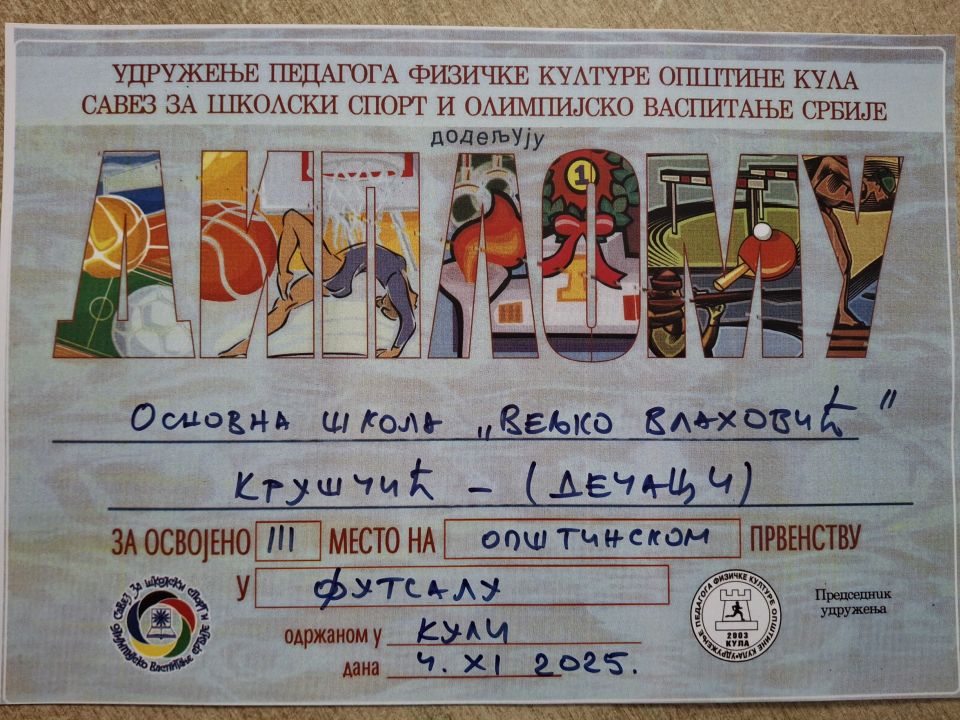 УДРУЖЕЊЕ ПЕДАГОГА ФИЗИЧКЕ КУЛТУРЕ ОПШТИНЕ КУЛА
САВЕЗ ЗА ШКОЛСКИ СПОРТ И ОЛИМПИЈСКО ВАСПИТАЊЕ СРБИЈЕ
додељују
ДИПЛОМУ
1
ОСНОВНА ШКОЛА „ВЕЉКО ВЛАХОВИЋ"
КРУШЧИЋ - (ДЕЧАЦИ)
ЗА ОСВОЈЕНО III МЕСТО НА ОПШТИНСКОМ ПРВЕНСТВУ
У ФУТСАЛУ
одржаном у КУЛИ
дана 4. XI 2025.
САВЕЗ ЗА ШКОЛСКИ СПОРТ И ОЛИМПИЈСКО ВАСПИТАЊЕ СРБИЈЕ
УДРУЖЕЊЕ ПЕДАГОГА ФИЗИЧКЕ КУЛТУРЕ ОПШТИНЕ КУЛА
2003
КУЛА
Председник
удружења